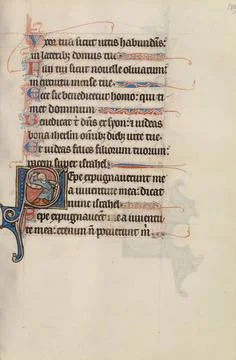 Uxor tua sicut uitis habundās:
in laterib; domus tue
Filii tui sicut nouelle oliuarum:
in circuitu mense tue
Ecce sic benedicetur homo: qui ti
met dominum
Benedicat t̄ dn̄s ex syon: ⁊ uideas
bona iherl̄m omīb; dieb; uite tue
Et uideas filios filiorum tuorum:
pacem super israhel
Sepe expugnauerunt me
a iuuentute mea: dicat
nunc israhel
Sepe expugnauer̄t me a iuuentu
te mea: etenim n̄ potuerunt m̄